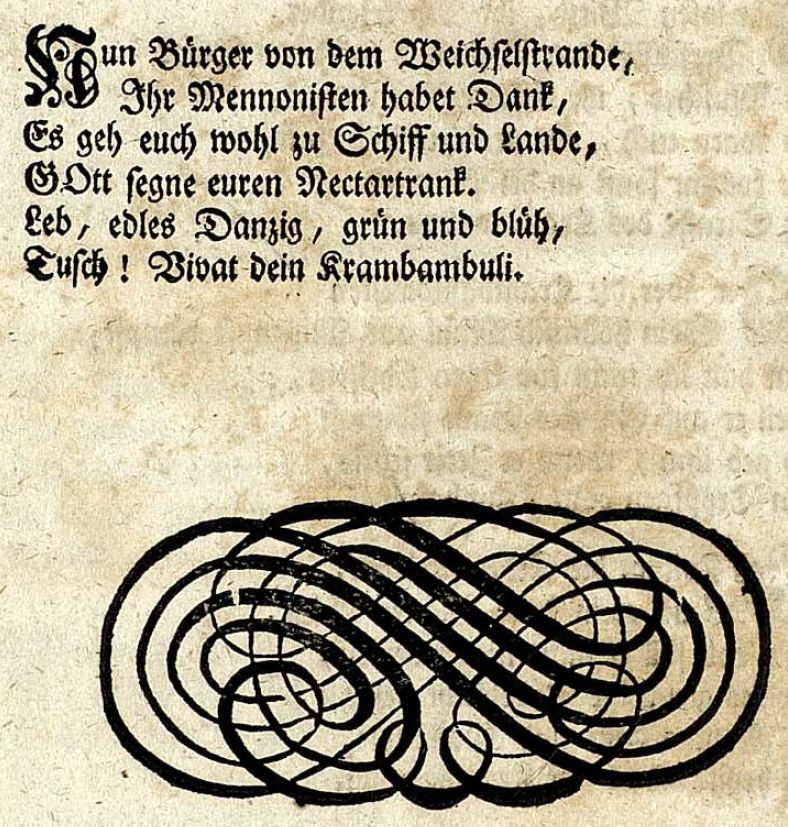 Nun Bürger von dem Weichselstrande,
Ihr Mennonisten habet Dank,
Es geh euch wohl zu Schiff und Lande,
GOtt segne euren Nectartrank.
Leb, edles Danzig, grün und blüh,
Tusch! Vivat dein Krambambuli.